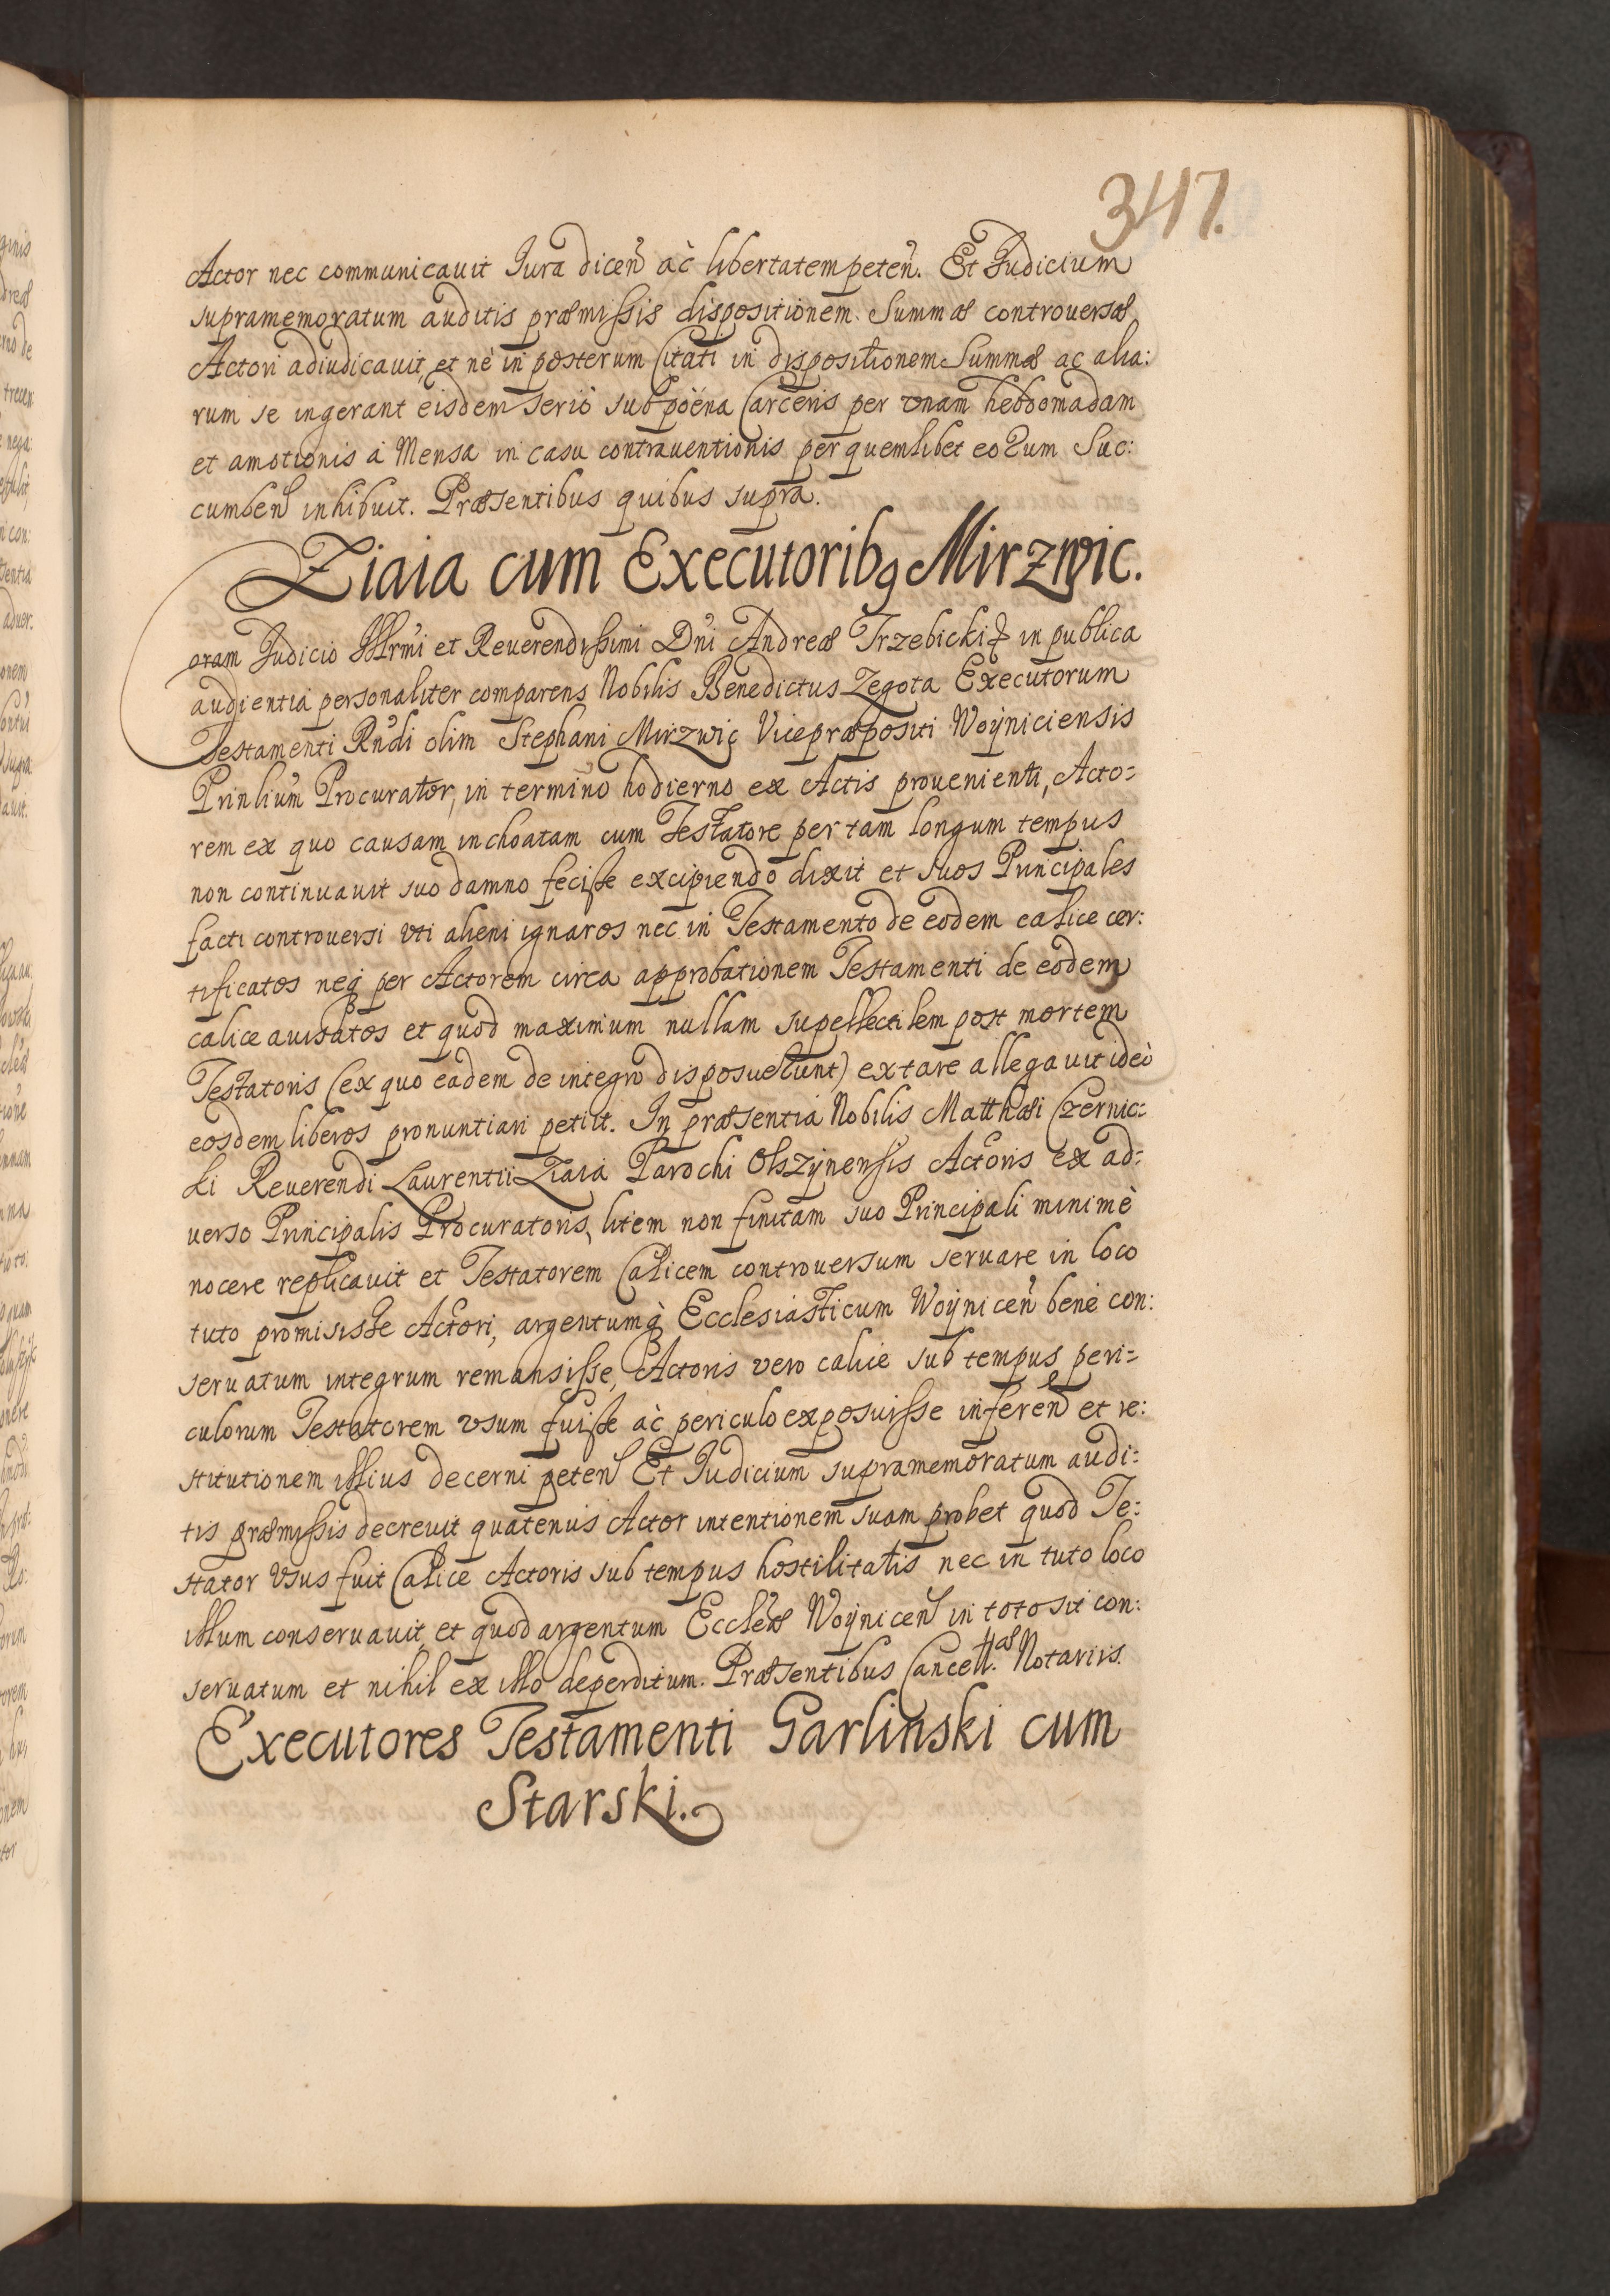 347.
Actor nec communicauit Jura dicen̄ ac̀ libertatem peten̄. Et Judicium
supramemoratum auditis præmissis dispositionem. Summæ controuersæ
Actori adiudicauit, et nè in posterum Citati in dispositionem Summæ ac alia:
rum se ingerant eisdem seriò sub pöena Carceris per vnam hebdomadam
et amotionis à Mensa in casu contrauentionis per quemlibet eorum Suc:
cumben inhibuit. Præsentibus quibus supra.
Ziaia cum Executorib9 Mirzwic.
Coram Judicio Illr̄mi et Reuerendissimi Dn̄i Andreæ Trzebicki in publica
audientia personaliter comparens Nobilis Benedictus Zegota Executorum
Testamenti Rn̄di olim Stephani Mirzwic Vicepræpositi Woÿniciensis
Prinliūm Procurator, in termino hodierno ex Actis prouenienti, Acto=
rem ex quo causam inchoatam cum Testatore per tam longum tempus
non continuauit suo damno fecisse excipiendo dixit et suos Principales
facti controuersi vti alieni ignaros nec in Testamento de eodem calice cer:
tificatos neq3 per Actorem circa approbationem Testamenti de eodem
calice auisatos et quod maximum nullam supellectilem post mortem
Testatoris (ex quo eadem de integro disposuerunt) extare allegauit ideò
eosdem liberos pronuntiari petiit. In præsentia Nobilis Matthæi Czernic=
ki Reuerendi Laurentii Ziaia Parochi Olszÿnensis Actoris ex ad=
uerso Principalis Procuratoris, litem non finitam suo Principali minimè
nocere replicauit et Testatorem Calicem controuersum seruare in loco
tuto promisisse Actori, argentumq3 Ecclesiasticum Woÿnicen̄ benè con:
seruatum integrum remansisse, Actoris vero calice sub tempus peri=
culorum Testatorem vsum fuisse ac̀ periculo exposuisse inferen et re:
stitutionem illius decerni peten Et Judicium supramemoratum audi=
tis præmissis decreuit quatenus Actor intentionem suam probet quod Te:
stator Vsus fuit Calice Actoris sub tempus hostilitatis nec in tuto loco
illum conseruauit, et quod argentum Ecclēæ Woÿnicen in toto sit con:
seruatum et nihil ex illo deperditum. Præsentibus Cancell.æ Notariis.
Executores Testamenti Garlinski cum
Starski.